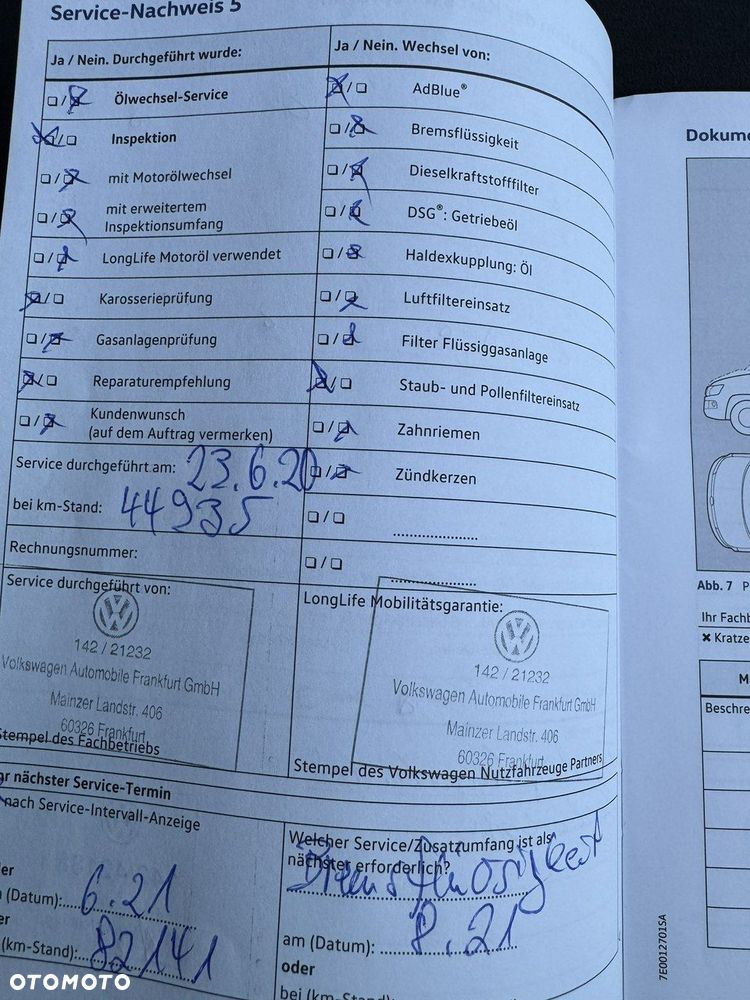 Service-Nachweis 5
Ja / Nein. Durchgeführt wurde:
Ölwechsel-Service
Inspektion
mit Motorölwechsel
mit erweitertem
Inspektionsumfang
LongLife Motoröl verwendet
Karosserieprüfung
Gasanlagenprüfung
Reparaturempfehlung
Kundenwunsch
(auf dem Auftrag vermerken)
Service durchgeführt am: 23.6.20
bei km-Stand: 44935
Rechnungsnummer:
Service durchgeführt von:
142 / 21232
Volkswagen Automobile Frankfurt GmbH
Mainzer Landstr. 406
60326 Frankfurt
Stempel des Fachbetriebs
Ja / Nein. Wechsel von:
AdBlue®
Bremsflüssigkeit
Dieselkraftstofffilter
DSG®: Getriebeöl
Haldexkupplung: Öl
Luftfiltereinsatz
Filter Flüssiggasanlage
Staub- und Pollenfiltereinsatz
Zahnriemen
Zündkerzen
LongLife Mobilitätsgarantie:
142 / 21232
Volkswagen Automobile Frankfurt GmbH
Mainzer Landstr. 406
60326 Frankfurt
Stempel des Volkswagen Nutzfahrzeuge Partners
nächster Service-Termin
nach Service-Intervall-Anzeige
(Datum): 6.21
(km-Stand): 82141
Welcher Service/Zusatzumfang ist als
nächster erforderlich?
Bremsflüssigkeit
am (Datum): 8.21
oder
bei (km-Stand)
Dokume
Abb. 7 P
Ihr Fachb
✖ Kratze
M
Beschre
7E0012701SA
OTOMOTO